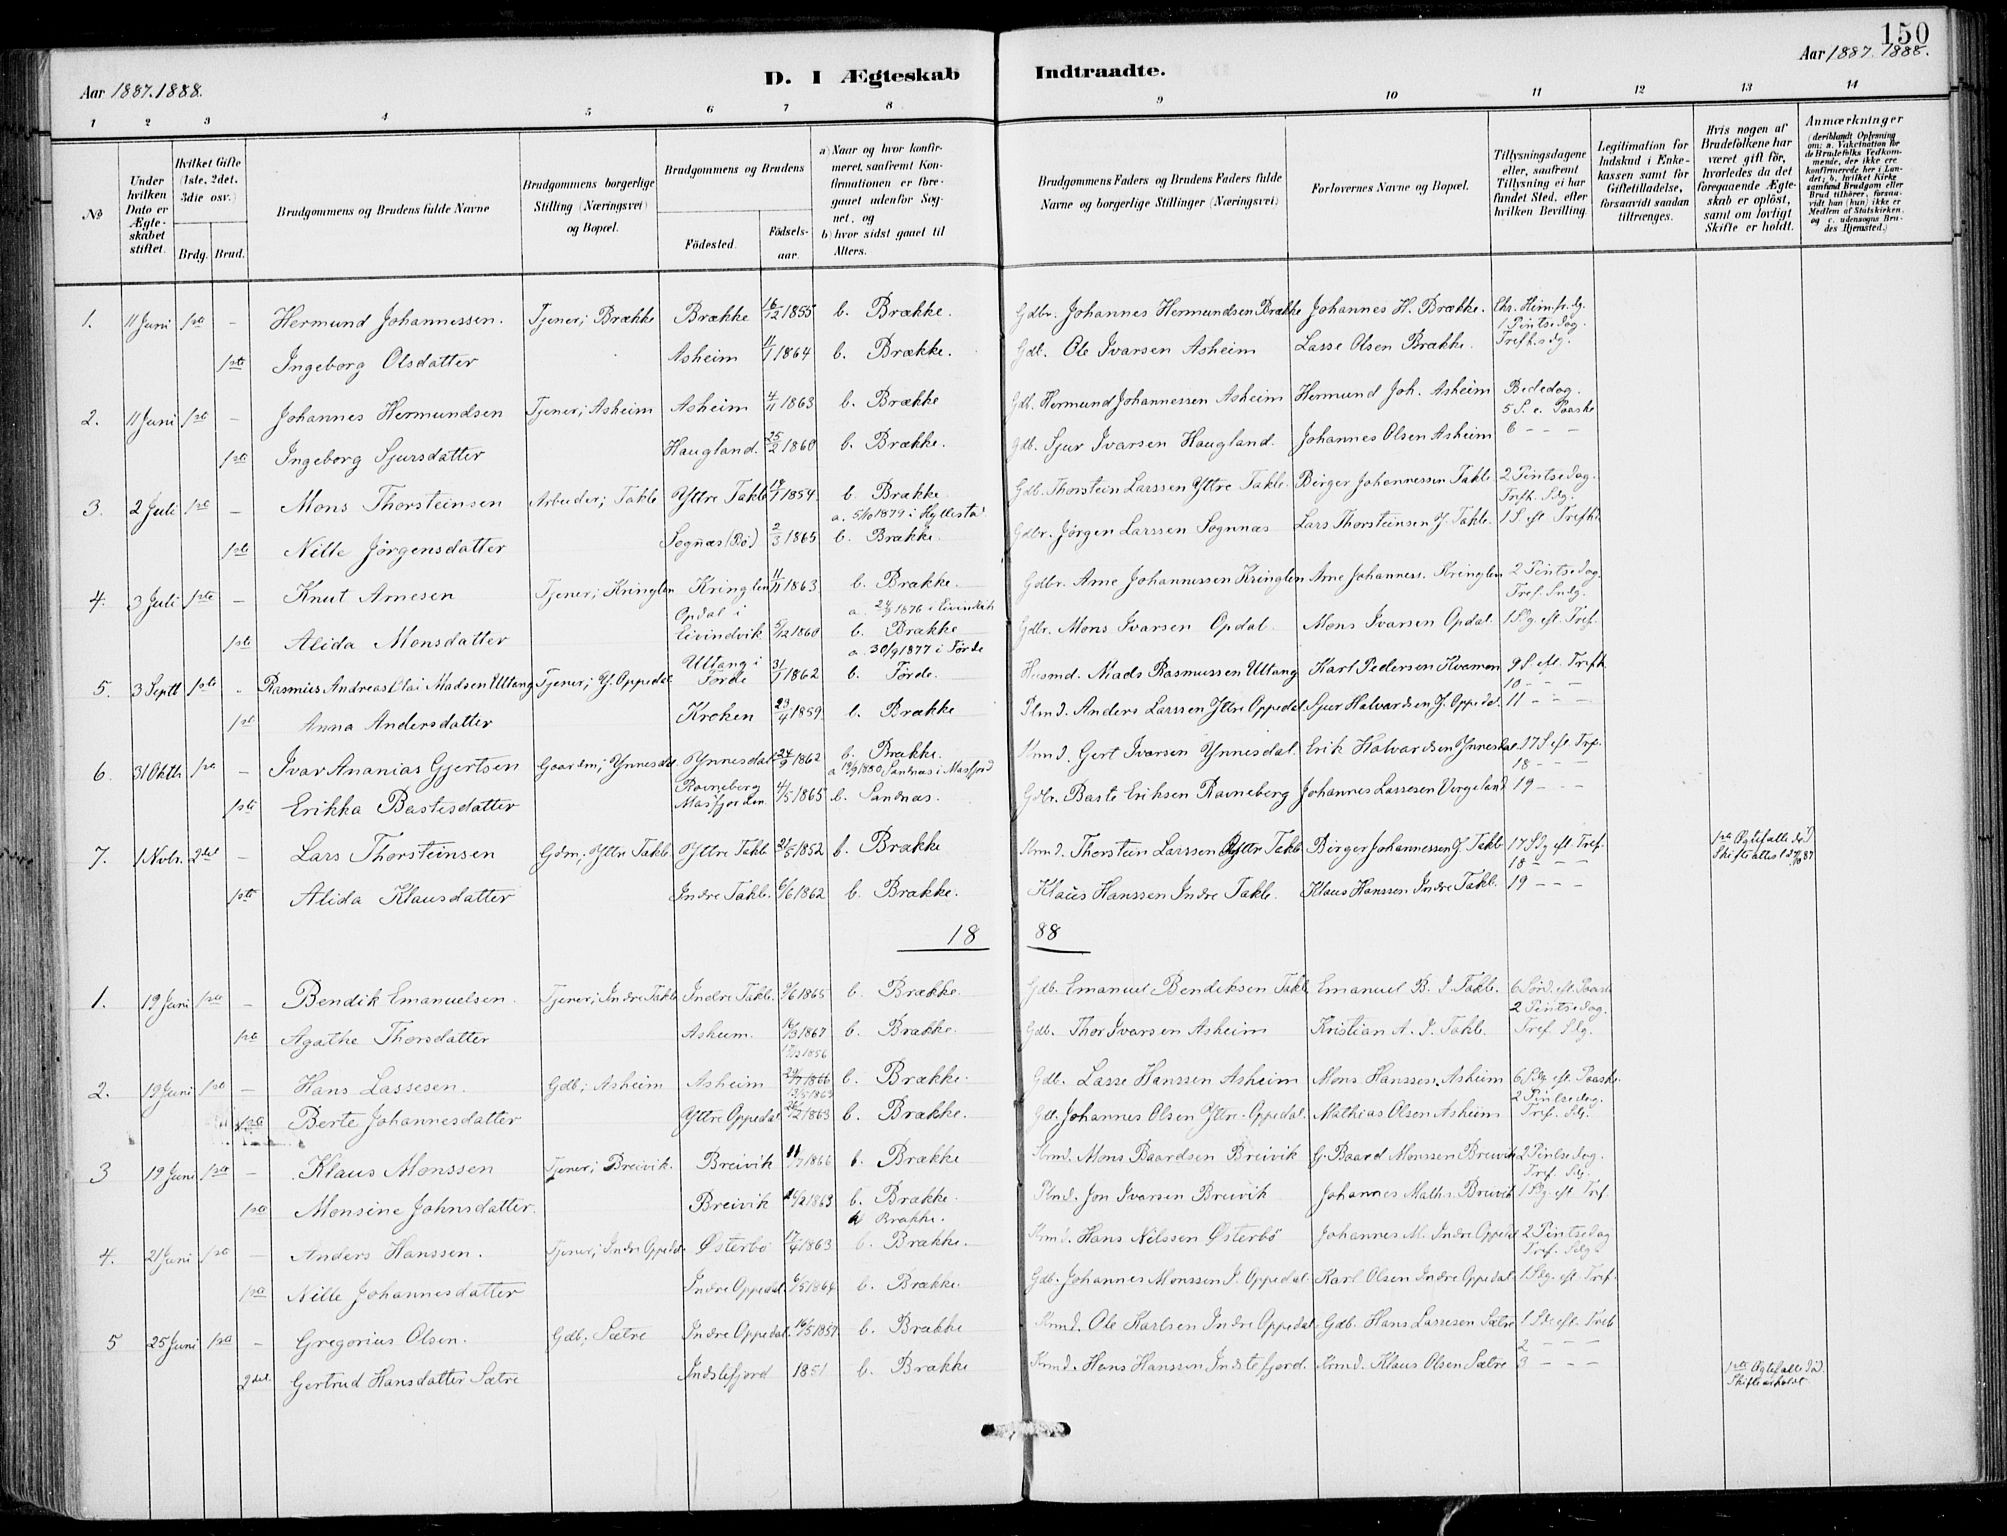 150
Aar 1887. 1888.
D. I Ægteskab Indtraadte.
Aar 1887. 1888.
1 2 3 4 5 6 7 8 9 10 11 12 13 14
No
Under hvilken Dato er Ægteskabet stiftet.
Hvilket Gifte (1ste, 2det, 3die osv.)
Brdg. Brud.
Brudgommens og Brudens fulde Navne
Brudgommens borgerlige Stilling (Næringsvei) og Bopæl.
Brudgommens og Brudens
Födested.
Födsels-aar.
a) Naar og hvor konfirmeret, saafremt Konfirmationen er foregaaet udenfor Sognet, og
b) hvor sidst gaaet til Alters.
Brudgommens Faders og Brudens Faders fulde Navne og borgerlige Stillinger (Næringsvei)
Forlovernes Navne og Bopæl.
Tillysningsdagene eller, saafremt Tillysning ei har fundet Sted, efter hvilken Bevilling.
Legitimation for Indskud i Enkekassen samt for Giftetilladelse, forsaavidt saadan tiltrænges.
Hvis nogen af Brudefolkene har været gift för, hvorledes da det foregaaende Ægteskab er oplöst, samt om lovligt Skifte er holdt.
Anmærkninger
(deriblandt Oplysning om; a. Vakcination for de Brudefolks Vedkommende, der ikke ere konfirmerede her i Landet; b. hvilket Kirkesamfund Brudgom eller Brud tilhörer, forsaavidt han (hun) ikke er Medlem af Statskirken, og c. udensogns Brudes Hjemsted.)
1. 11 Juni 1ste - Hermund Johannessen. Tjener; Brække Brække 16/12 1855 b. Brække. Gdbr. Johannes Hermundsen Brække Johannes H. Brække. Chr. Himfr.dg. 1 Pintsedag.
1ste Ingeborg Olsdatter Asheim 11/1 1864 b. Brække. Gdb. Ole Ivarsen Asheim Lasse Olsen Brække. Trefh.sdg.
2. 11 Juni 1ste - Johannes Hermundsen Tjener; Asheim Asheim 4/11 1863 b. Brække Gdb. Hermund Johannessen Asheim Hermund Joh. Asheim Bededag. 5 S. e. Paaske
1ste Ingeborg Sjursdatter Haugland. 25/2 1860 b. Brække. Gdb. Sjur Ivarsen Haugland. Johannes Olsen Asheim 6 - - -
3. 2 Juli 1ste - Mons Thorsteinsen Arbeider; Takle Yttre Takle 1854. b. Brække. Gdb. Thorstein Larssen Yttre Takle. Birger Johannessen Takle 2 Pintsedag. Trefh. Sdg.
a. 5/10 1879 i Hyllestad
1ste Nille Jörgensdatter Sognæs (Bö) 2/3 1865 b. Brække. Gdbr. Jörgen Larssen Sognnæs Lars Thorsteinsen Y. Takle. 1 S. eft. Trefh.
4. 3 Juli 1ste - Knut Arnesen Tjener; Kringlen Kringlen 11/11 1863 b. Brække. Gdbr. Arne Johannessen Kringlen Arne Johanness. Kringlen 2 Pintsedag. Tref. Sndg.
a. 1876 i Eivindvik
1ste Alida Monsdatter Opdal i Eivindvik 5/12 1860 b. Brække Gdbr. Mons Ivarsen Opdal. Mons Ivarsen Opdal. 1 Sdg. eft. Tref.
a. 30/9 1877 i Förde
5. 3 Septt 1ste - Rasmus Andreas Olai Madsen Uttang Tjener; Y. Oppedal Uttang i Förde 31/1 1862 b. Förde. Husmd. Mads Rasmussen Uttang Karl Pedersen Kvamen 9 S. eft. Trefh. 10 - - -
1ste Anna Andersdatter Kroken 1859. b. Brække Plmd. Anders Larssen Yttre Oppedal. Sjur Halvardsen Y. Oppedal. 11 - - -
6. 31 Oktb 1ste - Ivar Ananias Gjertsen Gaardm; Ynnesdal. Ynnesdal 24/9 1862 b. Brække. Krmd. Gert Ivarsen Ynnesdal. Erik Halvardsen Ynnesdal 17 S. eft. Tref. 18 - - -
a. 19/9 1880 Sandnæs i Masfjord
1ste Erikka Bastesdatter Ravneberg Masfjorden. 4/5 1865 b. Sandnæs. Gdbr. Baste Eriksen Ravneberg Johannes Lassesen Vergeland 19 - - -
7. 1 Novbr. 2det - Lars Thorsteinsen Gdm; Yttre Takle Yttre Takle 21/5 1852 b. Brække Krmd. Thorstein Larssen Yttre Takle Birger Johannessen Y. Takle 17 Sdg eft. Tref. 18 - - - 1ste Ægtefælle död Skifteattest 87
1ste Alida Klausdatter Indre Takle. 6/6 1862 b. Brække. Klaus Hanssen Indre Takle. Klaus Hanssen Indre Takle. 19 - - -
18 88
1. 19 Juni 1ste - Bendik Emanuelsen. Tjener; Indre Takle Indre Takle. 1865 b. Brække. Gdb. Emanuel Bendiksen Takle Emanuel B. I. Takle. 6 Sönd. eft. Paaske 2 Pintsedag.
1ste Agathe Thorsdatter Asheim. 1867 b. Brække. Gdb. Thor Ivarsen Asheim Kristian A. I. Takle. Tref. Sdg.
2. 19 Juni 1ste - Hans Lassesen. Gdb; Asheim Asheim 1856 1866 b. Brække. Gdb. Lasse Hanssen Asheim Mons Hanssen Asheim 6 Sdg eft. Paaske. 2 Pintsedag.
1ste Berte Johannesdatter Yttre Oppedal 1863 1863 b. Brække. Gdb. Johannes Olsen Yttre Oppedal. Mathias Olsen Asheim Tref. Sdg.
3 19 Juni 1ste - Klaus Monssen Tjener; Breivik. Breivik 11/7 1866 b. Brække Krmd. Mons Baardsen Breivik G. Baard Monssen Breivik 2 Pintsedag. Tref. Sdg.
1ste Monsine Johnsdatter. Breivik 1863 b. Brække. Plmd. Jon Ivarsen Breivik Johannes Maths. Breivik 1 Sdg. eft. Tref.
Brække.
4. 21 Juni 1ste - Anders Hanssen. Tjener; Indre Oppedal Østerbö 17/4 1863 b. Brække. Krmd. Hans Nilssen Østerbö Johannes M. Indre Oppedal 2 Pintsedag Tref. Sdg.
1ste Nille Johannesdatter Indre Oppedal. 6/5 1864 b. Brække. Gdb. Johannes Monssen I. Oppedal. Karl Olsen Indre Oppedal. 1 Sdg. eft. Tref.
5 25 Juni 1ste - Gregorius Olsen. Gdb; Sætre Indre Oppedal. 16/5 1857. b. Brække Krmd. Ole Karlsen Indre Oppedal. Gdb. Hans Lassesen Sætre 1 Sde eft. Treb 2 - - -
2det. Gertrud Hansdatter Sætre Indstefjord 1851 b. Brække Krmd. Hans Hanssen Indstefjord. Krmd. Klaus Olsen Sætre 3 - - - 1ste Ægtefælle död. Skifte afholdt.